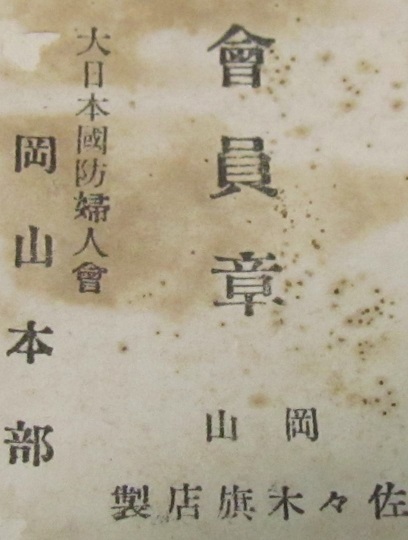 會員章
大日本國防婦人會
岡山本部
岡山
佐々木旗店製